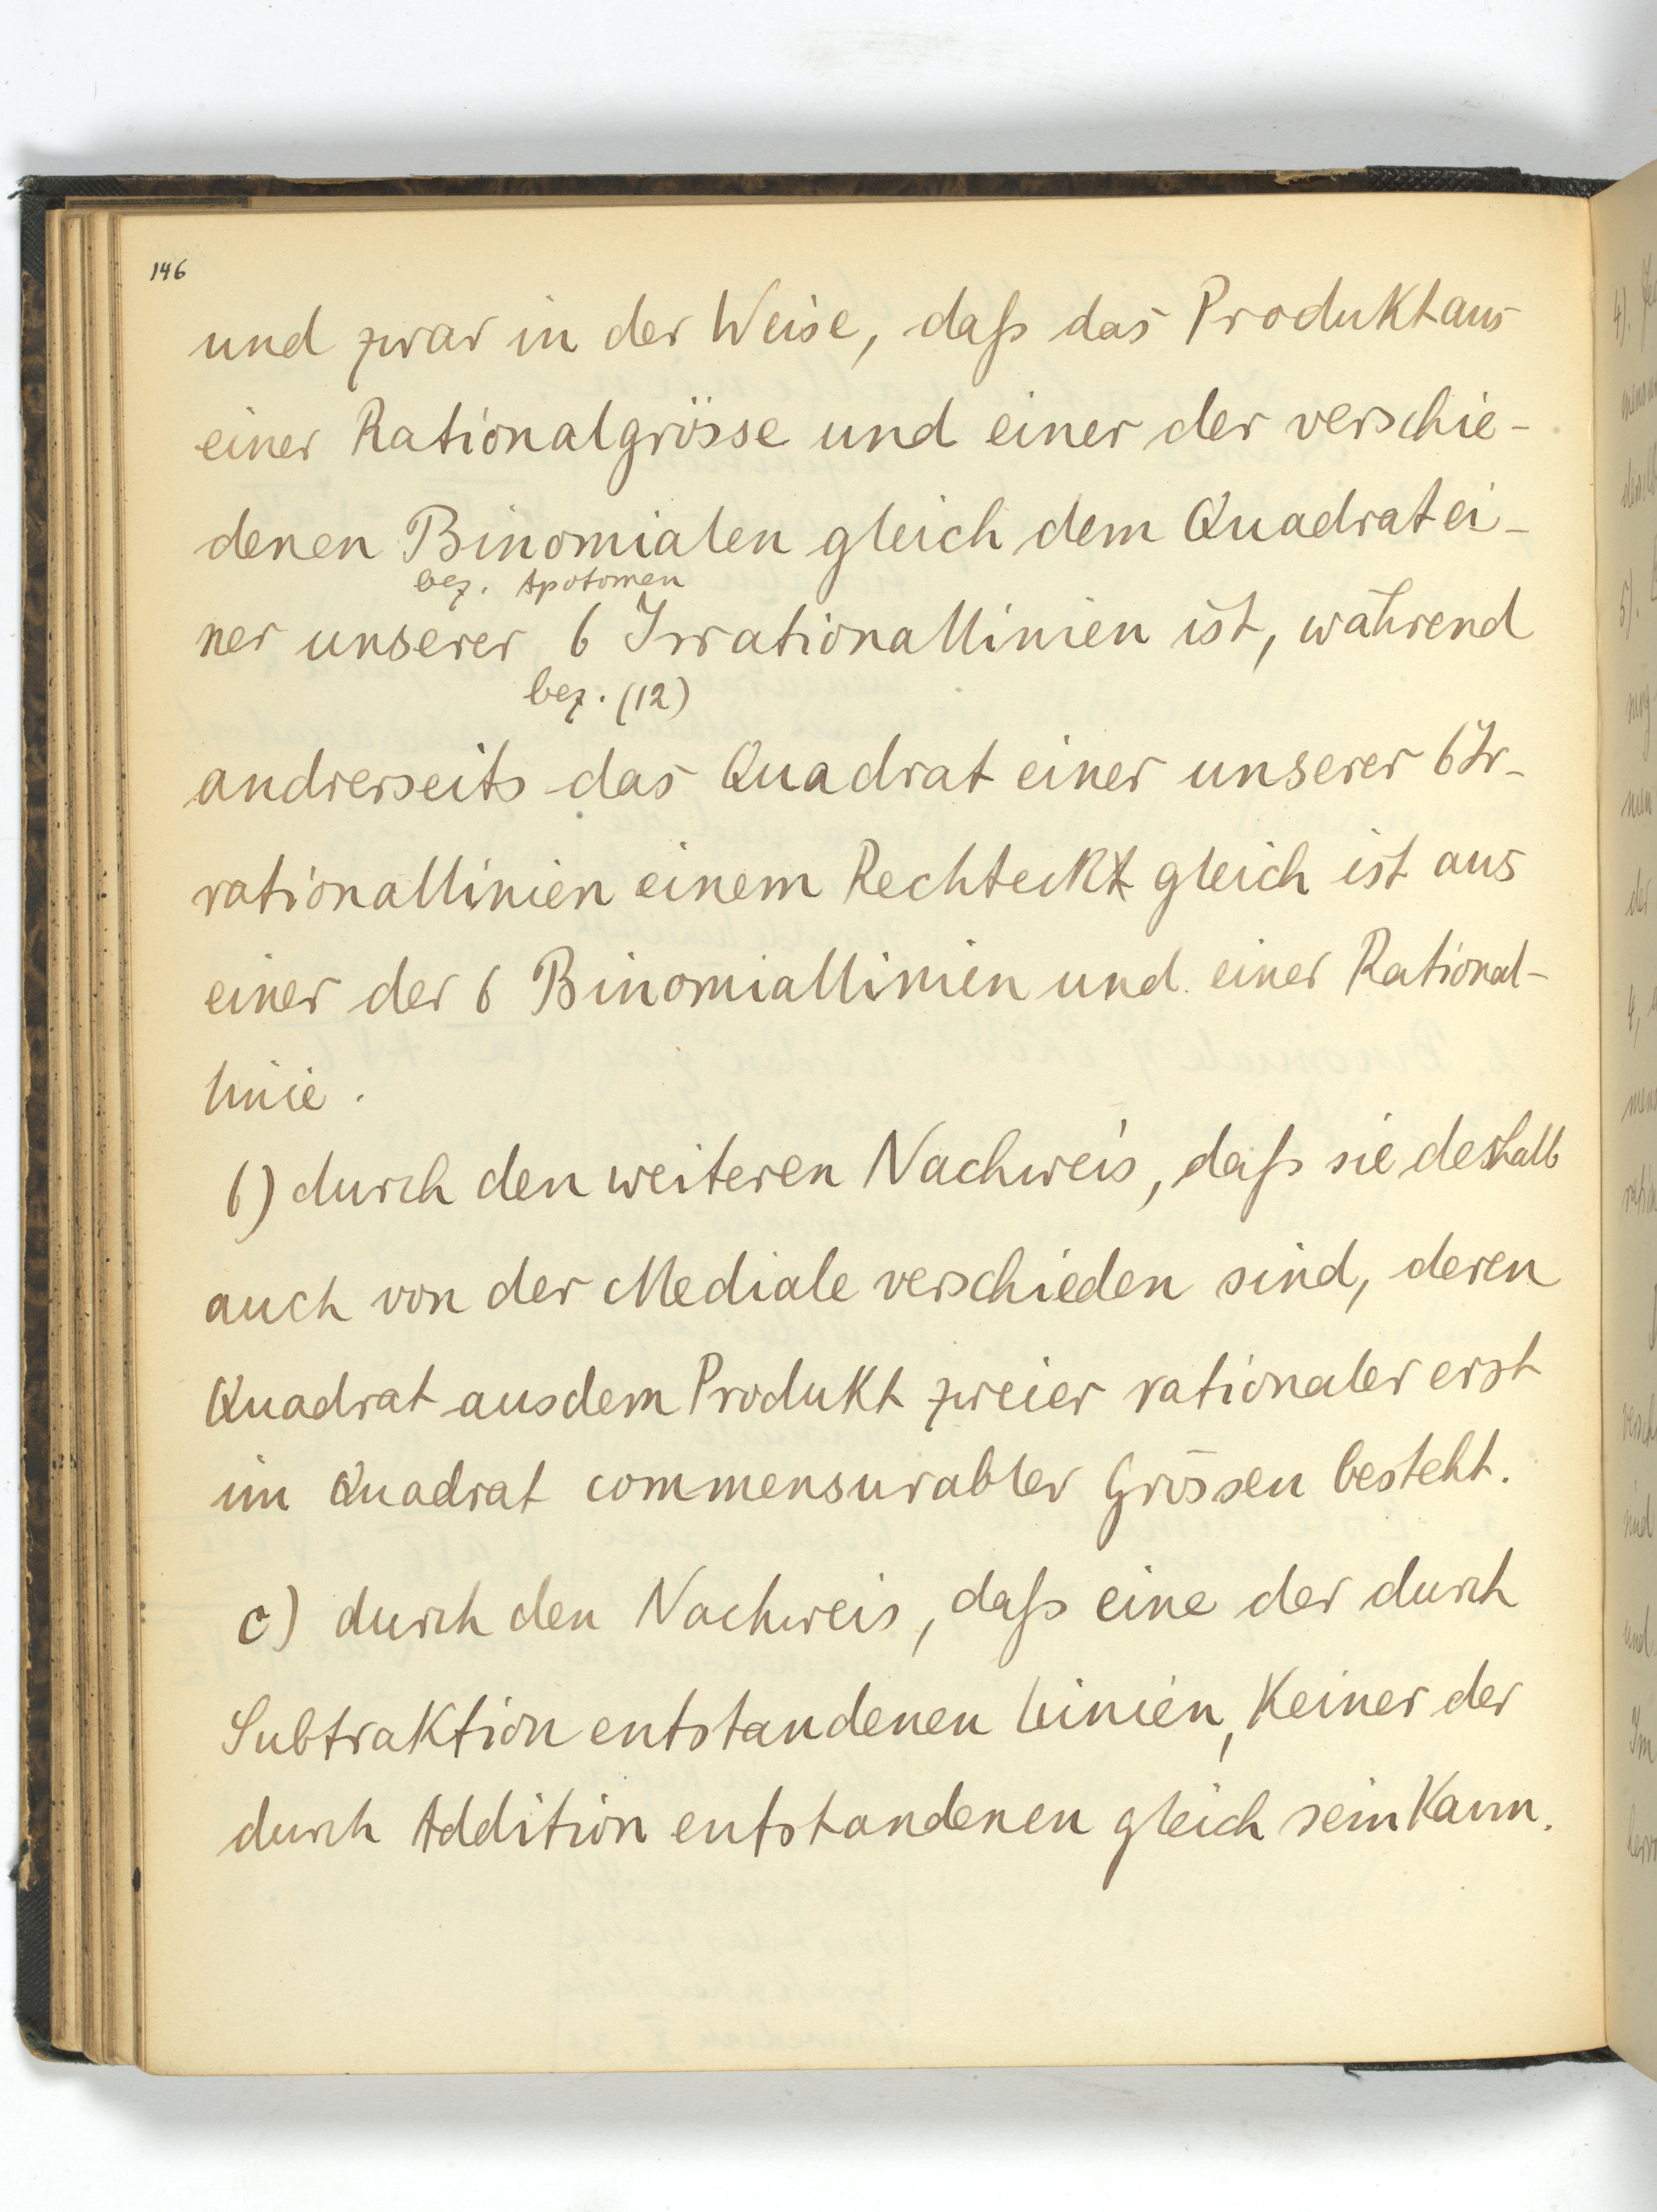 146
und zwar in der Weise, daß das Produkt aus
einer Rationalgrösse und einer der verschie-
denen Binomialen gleich dem Quadrat ei-
bez. Apotomen
ner unserer 6 Irrationallinien ist, während
bez. (12)
andrerseits das Quadrat einer unserer 6 Ir-
rationallinien einem Rechteck gleich ist aus
einer der 6 Binomiallinien und einer Rational-
linie.
b) durch den weiteren Nachweis, daß sie deshalb
auch von der Mediale verschieden sind, deren
Quadrat aus dem Produkt zweier rationaler erst
im Quadrat commensurabler Grössen besteht.
c) durch den Nachweis, daß eine der durch
Subtraktion entstandenen Linien, Keiner der
durch Addition entstandenen gleich sein Kann.